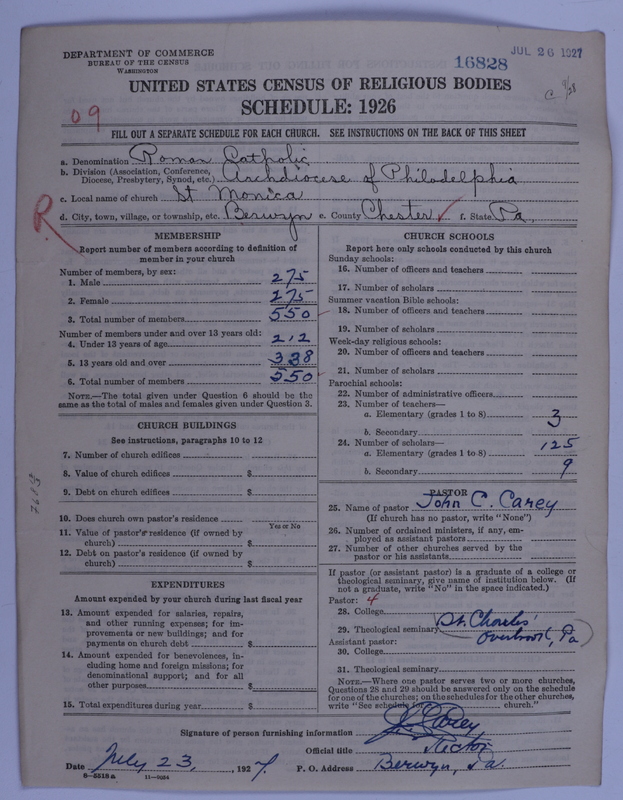 DEPARTMENT OF COMMERCE
BUREAU OF THE CENSUS
WASHINGTON
16828
JUL 26 1927
UNITED STATES CENSUS OF RELIGIOUS BODIES
SCHEDULE: 1926
09
FILL OUT A SEPARATE SCHEDULE FOR EACH CHURCH. SEE INSTRUCTIONS ON THE BACK OF THIS SHEET
a. Denomination Roman Catholic
b. Division (Association, Conference, Diocese, Presbytery, Synod, etc.) Archdiocese of Philadelphia
c. Local name of church St Monica
d. City, town, village, or township, etc. Berwyn e. County Chester f. State Pa.
R
MEMBERSHIP
Report number of members according to definition of
member in your church
Number of members, by sex:
1. Male 275
2. Female 275
3. Total number of members 550
Number of members under and over 13 years old:
4. Under 13 years of age 212
5. 13 years old and over 338
6. Total number of members 550
NOTE.—The total given under Question 6 should be
same as the total of males and females given under Question 3.
CHURCH BUILDINGS
See instructions, paragraphs 10 to 12
7. Number of church edifices
8. Value of church edifices $
9. Debt on church edifices $
10. Does church own pastor's residence
Yes or No
11. Value of pastor's residence (if owned by
church) $
12. Debt on pastor's residence (if owned by
church) $
EXPENDITURES
Amount expended by your church during last fiscal year
13. Amount expended for salaries, repairs,
and other running expenses; for im-
provements or new buildings; and for
payments on church debt $
14. Amount expended for benevolences, in-
cluding home and foreign missions; for
denominational support; and for all
other purposes $
15. Total expenditures during year $
CHURCH SCHOOLS
Report here only schools conducted by this church
Sunday schools:
16. Number of officers and teachers
17. Number of scholars
Summer vacation Bible schools:
18. Number of officers and teachers
19. Number of scholars
Week-day religious schools:
20. Number of officers and teachers
21. Number of scholars
Parochial schools:
22. Number of administrative officers
23. Number of teachers—
a. Elementary (grades 1 to 8) 3
b. Secondary
24. Number of scholars—
a. Elementary (grades 1 to 8) 125
b. Secondary 9
PASTOR
25. Name of pastor John C. Carey
(If church has no pastor, write "None")
26. Number of ordained ministers, if any, em-
ployed as assistant pastors
27. Number of other churches served by the
pastor or his assistants
If pastor (or assistant pastor) is a graduate of a college or
theological seminary, give name of institution below. (If
not a graduate, write "No" in the space indicated.)
Pastor: 4
28. College
29. Theological seminary St. Charles'
Overbrook, Pa
Assistant pastor:
30. College
31. Theological seminary
NOTE.—Where one pastor serves two or more churches,
Questions 28 and 29 should be answered only on the schedule
for one of the churches; on the schedules for the other churches,
write "See schedule for church."
Signature of person furnishing information J C Carey
Official title Rector
Date July 23, 1927 P. O. Address Berwyn, Pa.
8—5518a 11—9064